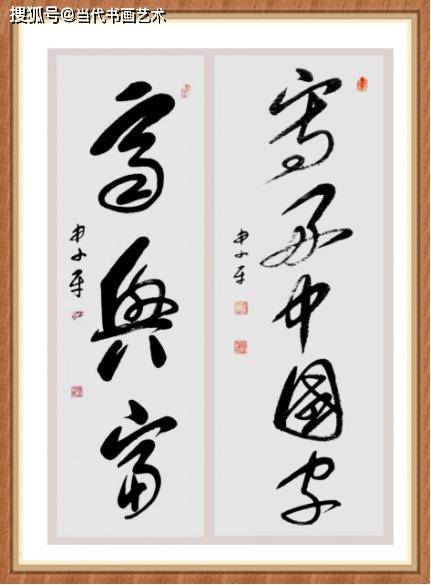 搜狐号@当代书画艺术
寫好中國字
申小平
高興
申小平